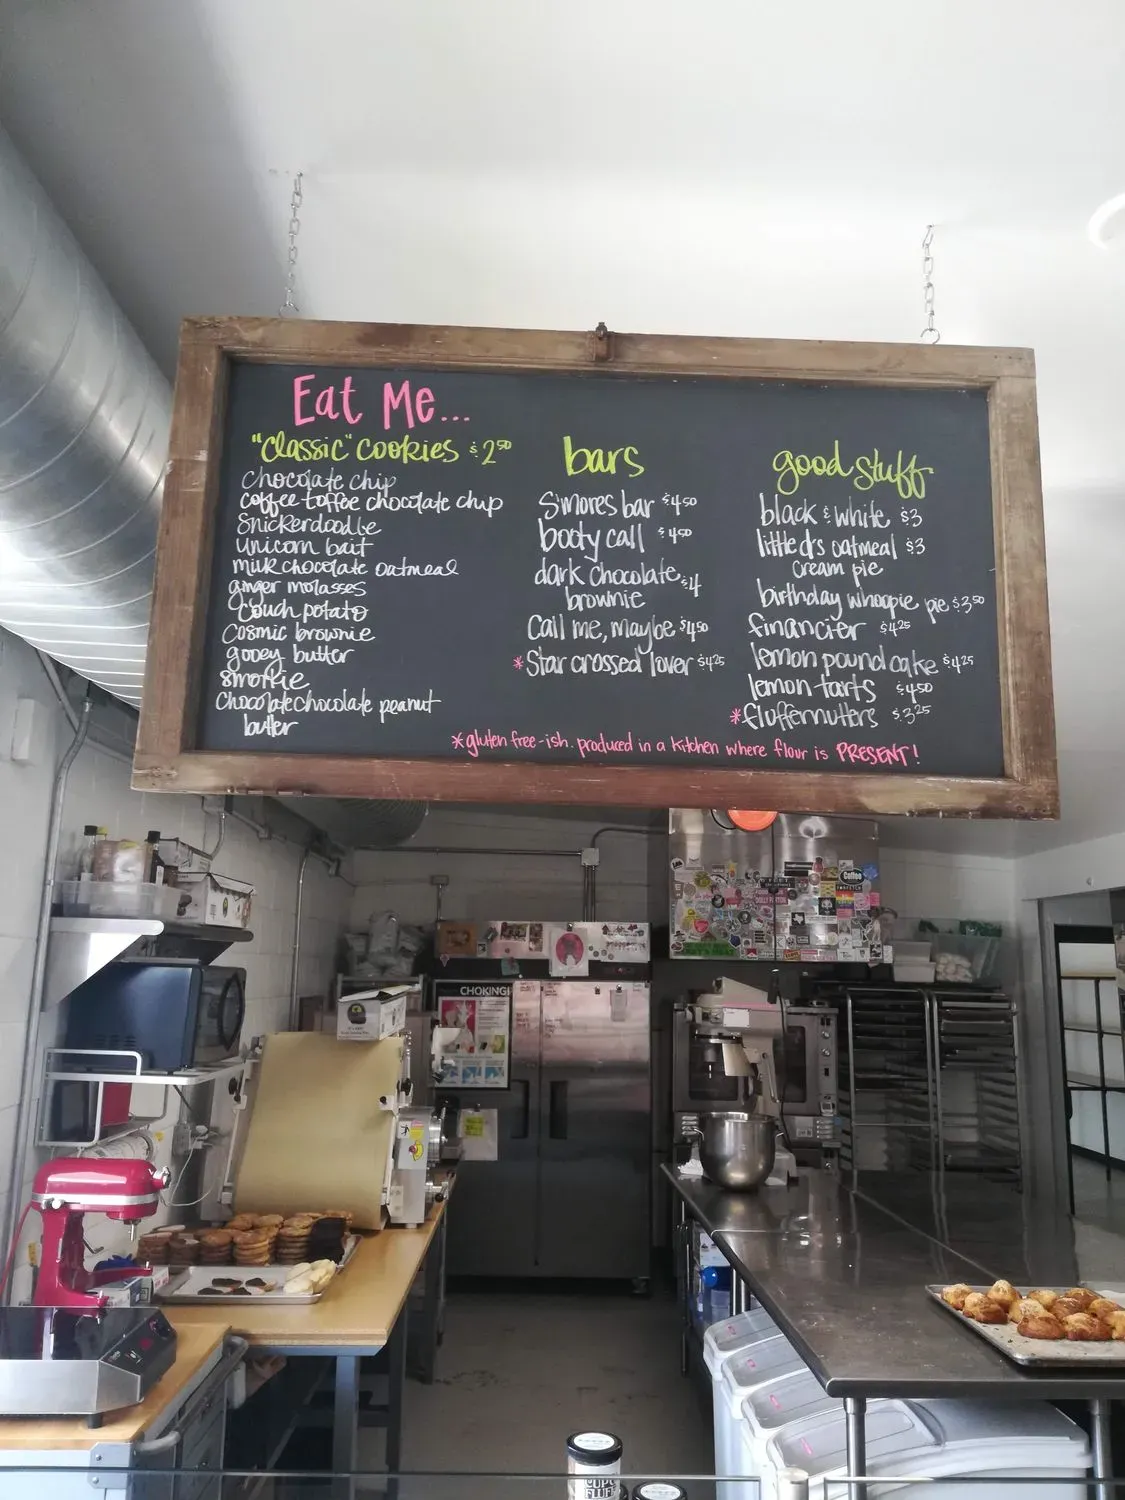 Eat Me...
"Classic" Cookies $2.50
chocolate chip
coffee toffee chocolate chip
Snickerdoodle
unicorn bait
milk chocolate oatmeal
ginger molasses
couch potato
cosmic brownie
gooey butter
smorkie
Chocolate chocolate peanut
butter
bars
S'mores bar $4.50
booty call $4.50
dark chocolate $4
brownie
Call me, maybe $4.50
*Star crossed lover $4.25
good stuff
black & white $3
little d's oatmeal $3
cream pie
birthday whoopie pie $3.50
financier $4.25
lemon pound cake $4.25
lemon tarts $4.50
*fluffernutters $3.25
*gluten free-ish. produced in a kitchen where flour is PRESENT!
CHOKING!
Coffee
FLUFF